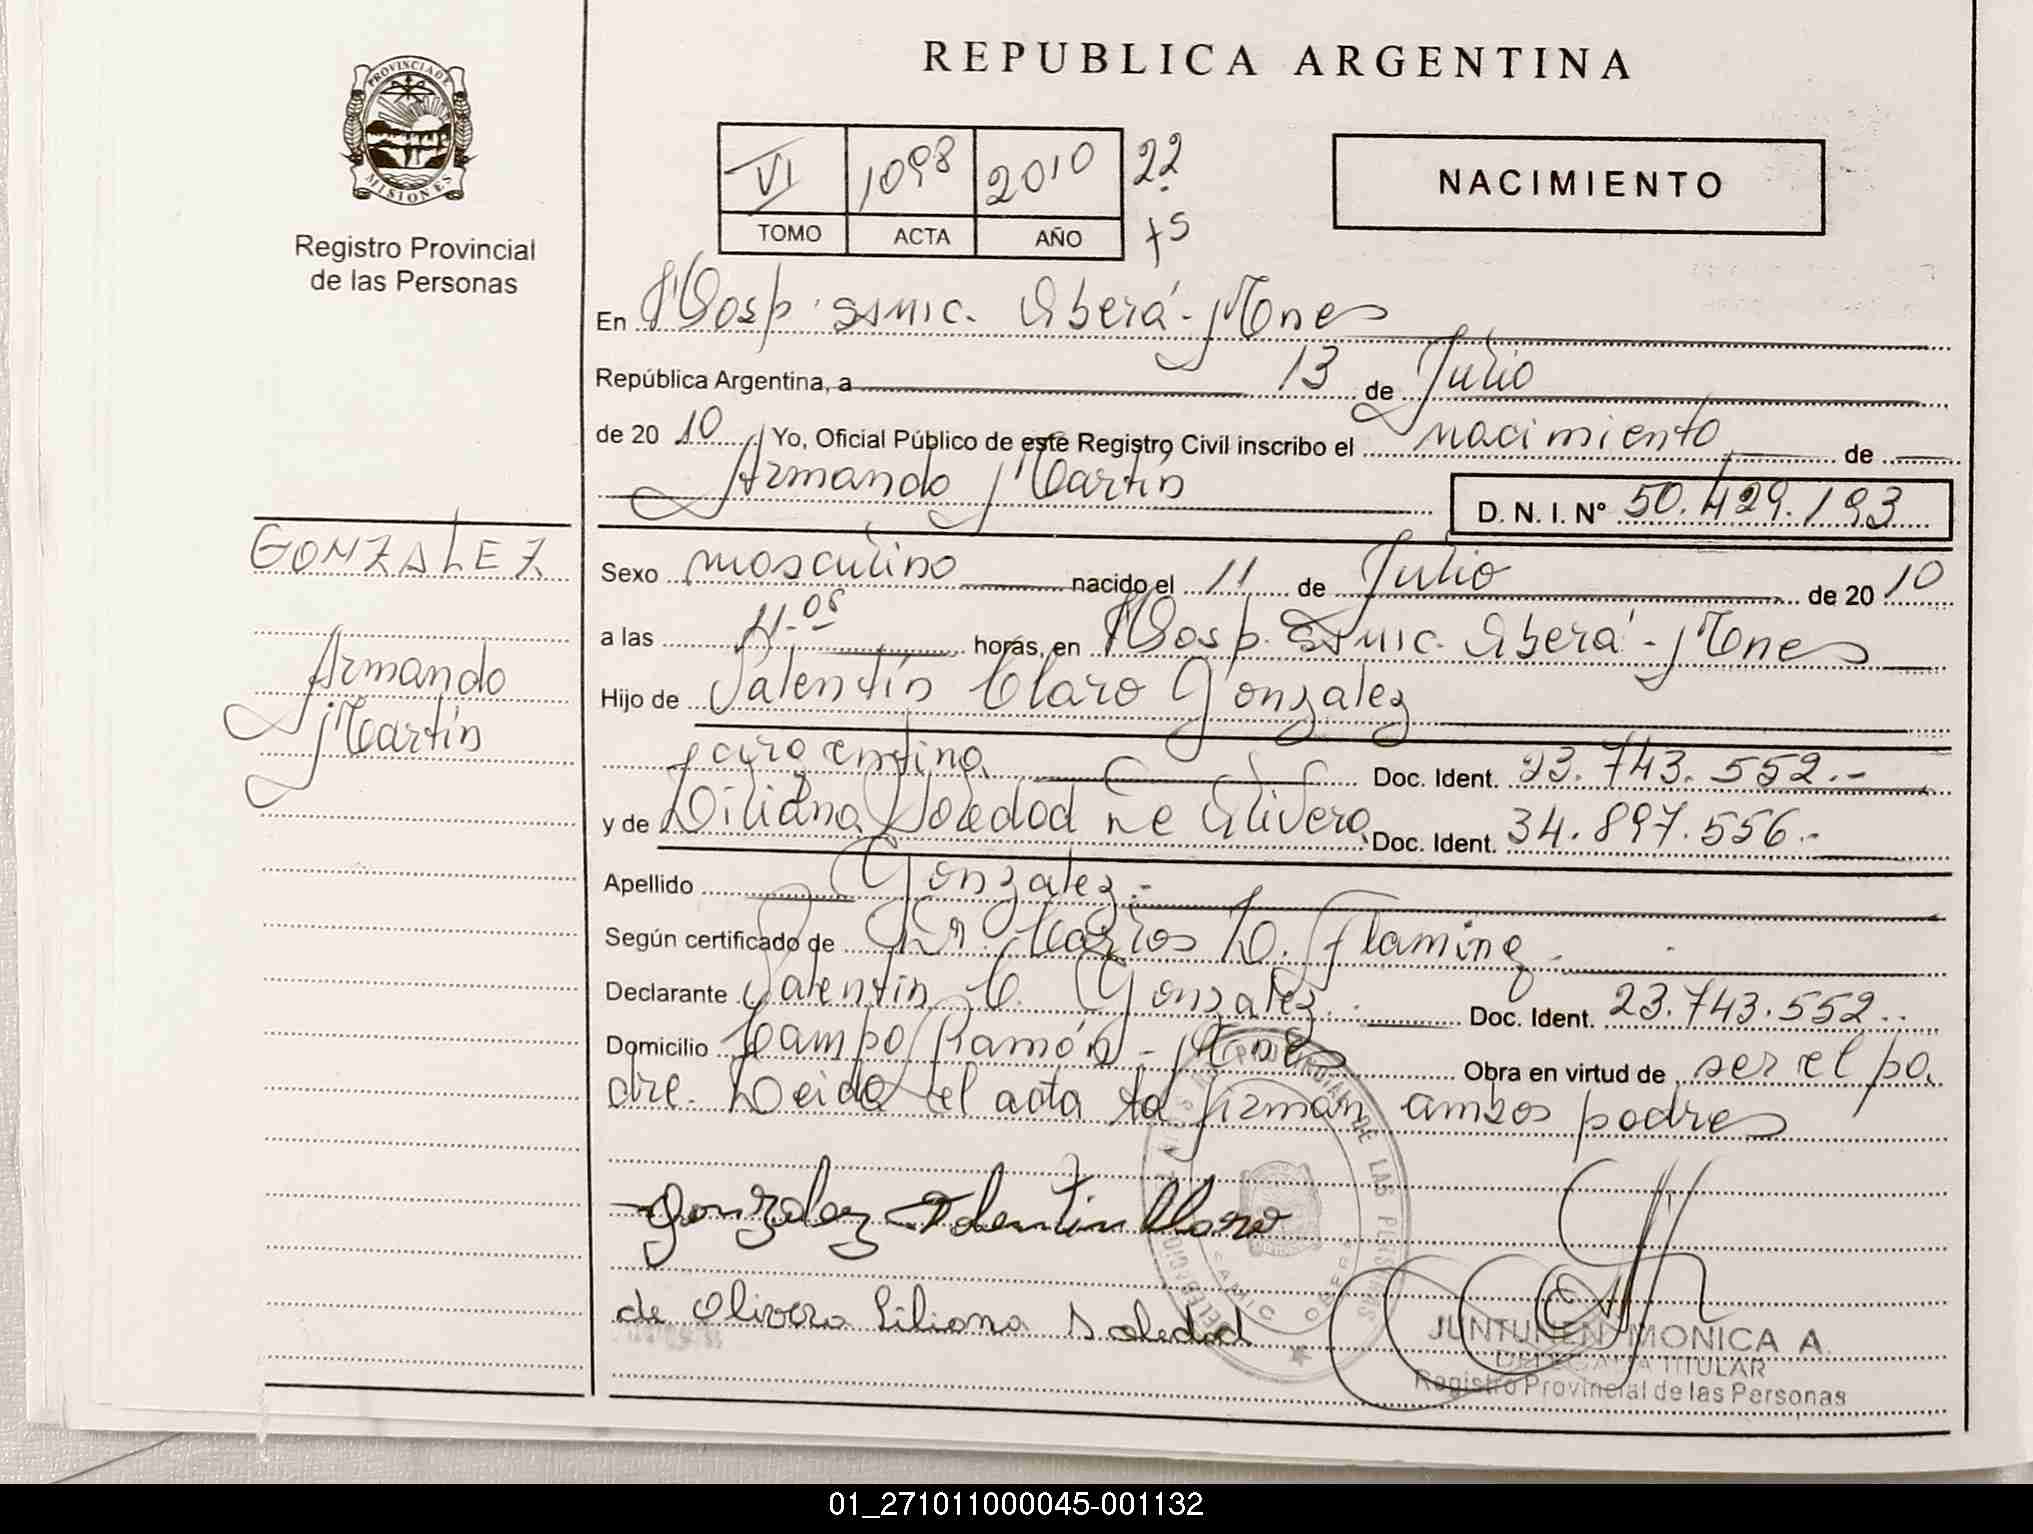 REPUBLICA ARGENTINA
PROVINCIA DE
MISIONES
Registro Provincial
de las Personas
VI 1098 2010 22
TOMO ACTA AÑO 75
NACIMIENTO
En Hosp. SAMIC. Oberá - Mnes
República Argentina, a 13 de Julio
de 20 10 Yo, Oficial Público de este Registro Civil inscribo el nacimiento de
Armando Martín
D. N. I. Nº 50.429.193
GONZALEZ
Armando
Martín
Sexo masculino nacido el 11 de Julio de 20 10
a las 11-05 horas, en Hosp. SAMIC. Oberá - Mnes
Hijo de Valentín Claro Gonzalez
argentina Doc. Ident. 23.743.552.-
y de Liliana Soledad De Olivera Doc. Ident. 34.897.556.-
Apellido Gonzalez.-
Según certificado de Dr. Carlos D. Flaming.
Declarante Valentín C. Gonzalez. Doc. Ident. 23.743.552.
Domicilio Campo Ramón - Mnes Obra en virtud de ser el pa
dre. Leida el acta la firman ambos padres
Gonzalez Valentin Claro
de Olivera Liliana Soledad
JUNTUNEN MONICA A.
DELEGADA TITULAR
Registro Provincial de las Personas
01_271011000045-001132